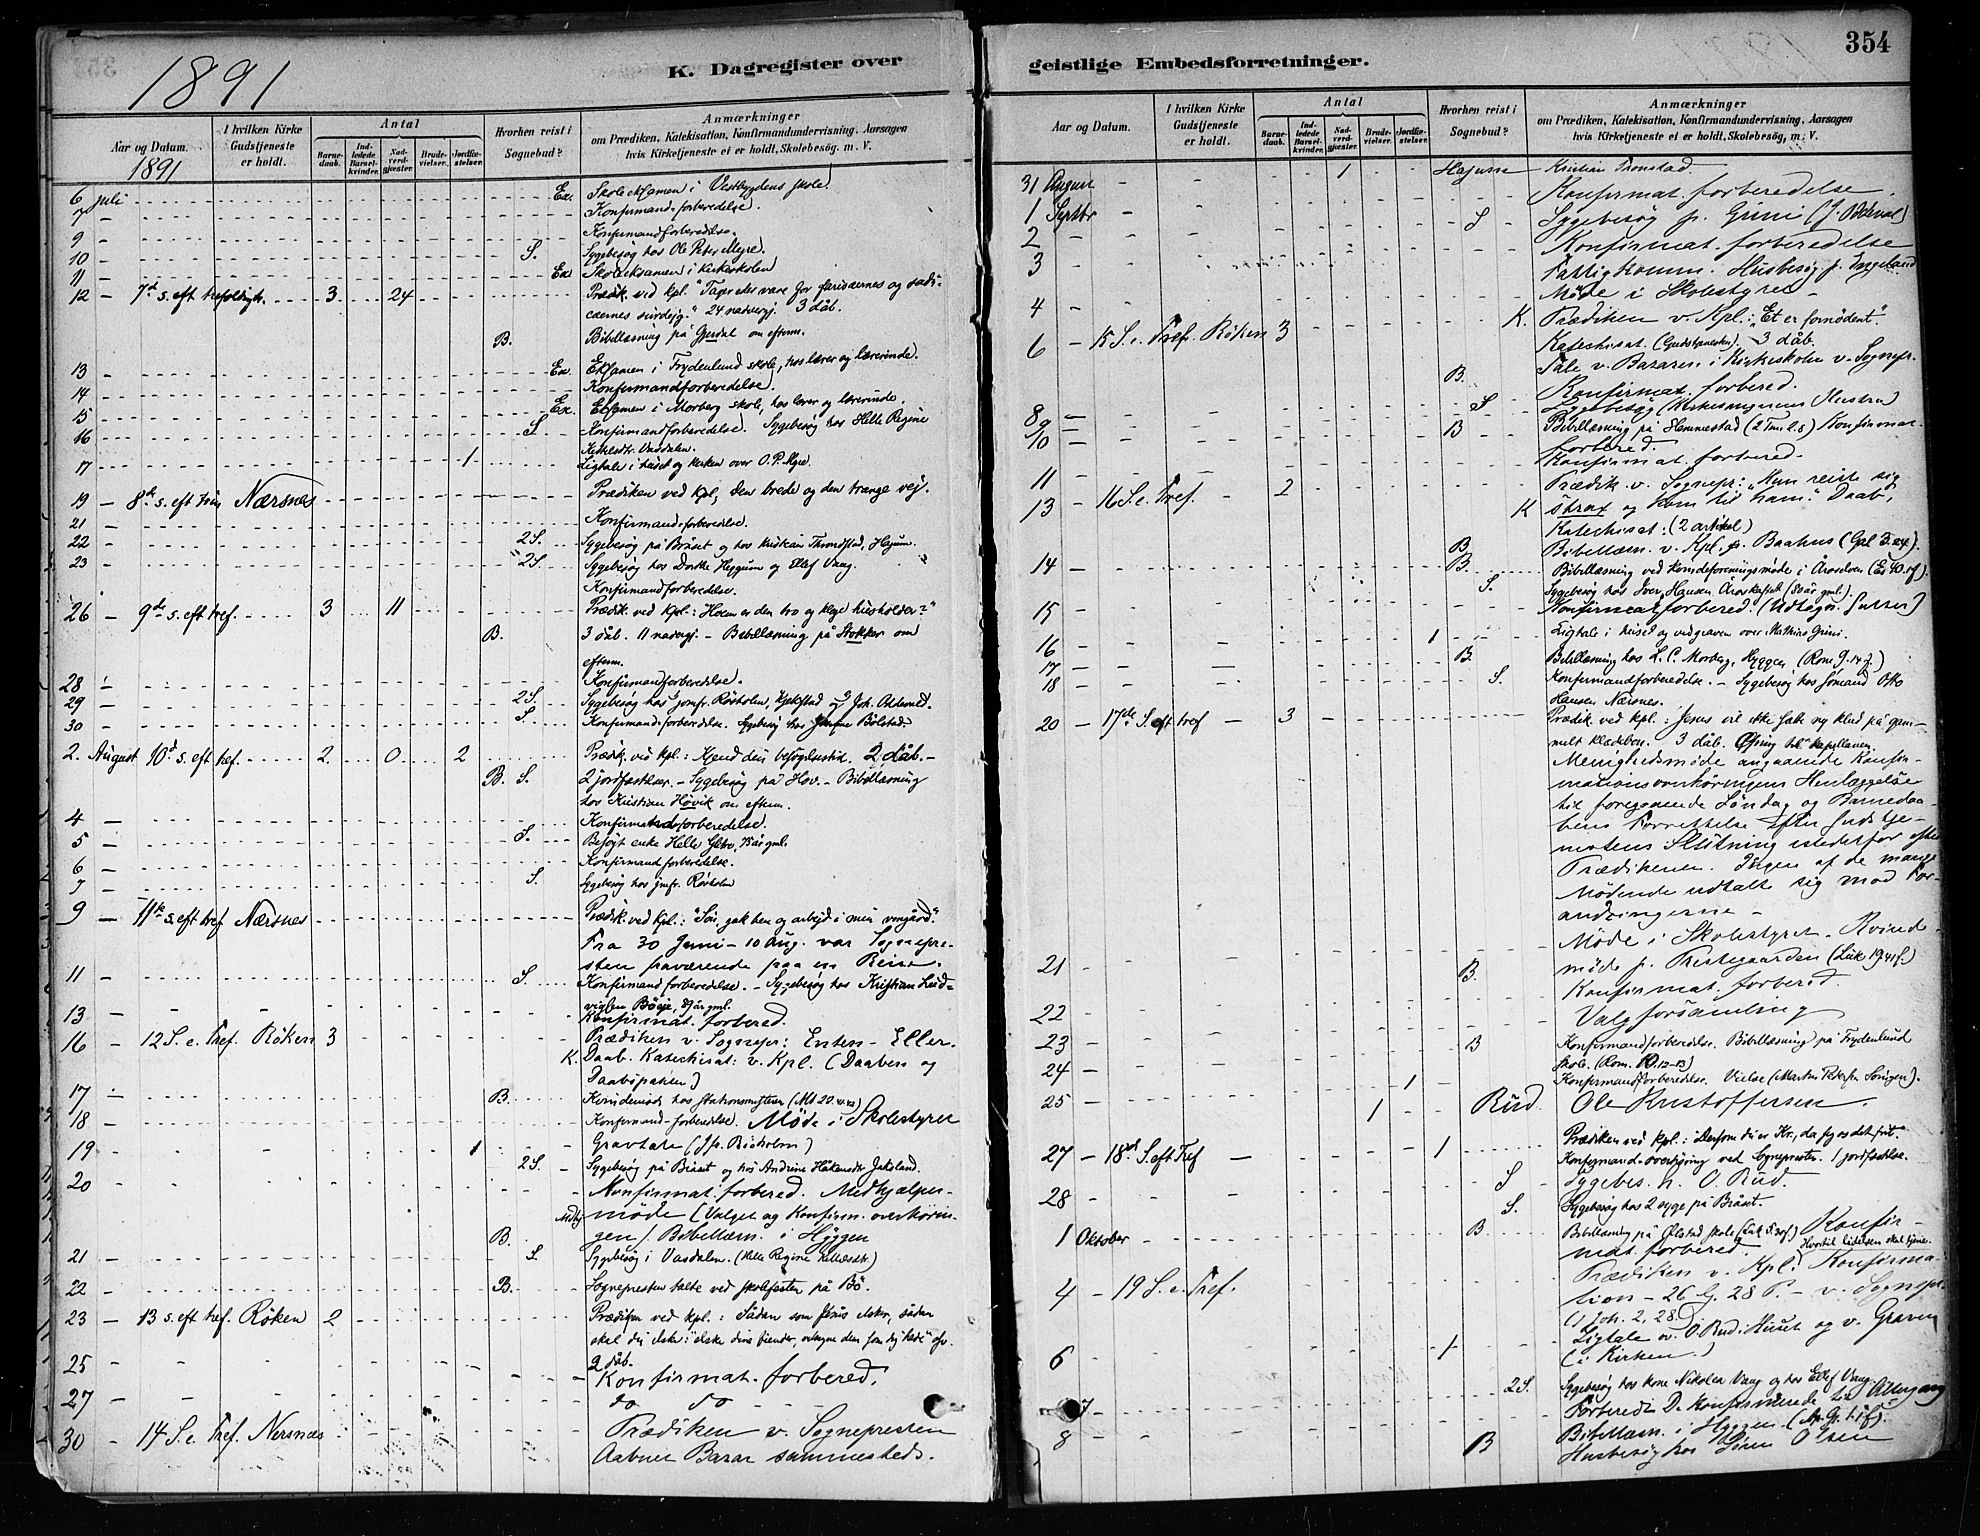 1891
K. Dagregister over
Aar og Datum.
1891
I hvilken Kirke Gudstjeneste er holdt.
Antal
Barnedaab.
Indledede Barselkvinder.
Nadverdgjester.
Brudevielser.
Jordfæstelser.
Hvorhen reist i Sognebud?
Anmærkninger
om Prædiken, Katekisation, Konfirmandundervisning, Aarsagen
hvis Kirketjeneste ei er holdt, Skolebesög, m. V.
6 juli Ex. Skoleeksamen i Vestbygdens skole.
7 – Konfirmand-forberedelse.
9 – Konfirmandforberedelse.
10 – S. Sygebesög hos Ole Peter Myre.
11 – Ex Skoleeksamen i Kirkeskolen
12 – 7d s. eft trefoldigh. 3 24 Prædik. ved kpl. "Tager eder vare for farisæernes og sadu-
cæernes surdejg." 24 nadvergj. 3 dåb.
B. Bibellæsning på Gjerdal om efterm.
13 – Ex. Eksamen i Frydenlund skole, hos lærer og lærerinde.
14 – Konfirmandforberedelse.
15 – Ex. Eksamen i Morberg skole, hos lærer og lærerinde.
16 – S. Konfirmandforberedelse. Sygebesög hos Helle Regine
Vasdalen.
17 – 1 Ligtale i huset og kirken over O. P. Myre.
19 – 8de s. eft trin Nærsnes Prædiken ved kpl, den brede og den trange vej.
21 – Konfirmand-forberedelse.
22 – 2S. Sygebesög på Bråset og hos Kristian Throndstad, Høgum.
23 – 2S. Sygebesög hos Dorthe Heggum og Ellef Vang.
Konfirmandforberedelse.
26 – 9de s. eft tref. 3 11 Prædik ved kpl: Hvem er den tro og kloge husholder?"
B. 3 dåb. 11 nadvergj. – Bibellæsning på Stokker om
efterm.
28 – Konfirmandforberedelse.
29 – 2S. Sygebesög hos jomfr. Røisholm, Kjekstad og Joh.
30 – S. Konfirmand-forberedelse. Sygebesög hos Bölstad
2. August 10d s. eft tref. 2. 0 2 Prædik. ved kpl: Kjend din besøgelsestid. 2 dåb. –
B. S. 2 jordfæstelser. – Sygebesög på Hov. – Bibellæsning
hos Kristian Hövik om efterm.
4 – Konfirmandforberedelse.
5 – S. Besögt enke Helle
6 – Konfirmandforberedelse.
7 – S. Sygebesög hos jmfr. Røisholm
9 – 11te s. eft tref Nærsnes Prædik. ved kpl.: "Sön, gak hen og arbejd i min vingård."
Fra 30 Juni – 10 Aug. var Sognepre-
sten fraværende paa en Reise.
11 – S. Konfirmandforberedelse. – Sygebesög hos Kristian Lud-
vigsen
13 – Konfirmat. forbered.
16 – 12 S. e. Tref. Røken 3 Prædiken v. Sognepr: Enten – Eller.
K. Daab. Katechisat: v. Kpl. (Daaben og
Daabspagten)
17 – B. Kvindemøde hos Stationsmesteren
18 – Konfirmand-forberedelse. Møde i Skolestyret
19 – 1 Gravtale
2S. – Sygebesög på Bråset og hos Andrine Håkensdr Jakslund.
20 – Konfirmat. forbered. Medhjælper-
møde (Valget og Konfirm. overhörin-
B. gen). Bibellæsn. i Hyggen
21 – S. Sygebesög i Vasdalen. (Helle Regine)
22 – B. Sognepresten talte ved skolefesten på Bö.
23 – 13 s. eft tref. Røken 2 Prædiken ved kpl.: Sådan som Jesus elsker, sådan
skal du elske: "elsker dine fiender,
2 dåb.
25 – Konfirmat. forbered.
27 – do do
30 – 14 S. e. Tref. Nersnæs Prædiken v. Sognepresten
Aabner Bazar sammesteds.
354
geistlige Embedsforretninger.
Aar og Datum.
I hvilken Kirke Gudstjeneste er holdt.
Antal
Barnedaab.
Indledede Barselkvinder.
Nadverdgjester.
Brudevielser.
Jordfæstelser.
Hvorhen reist i Sognebud?
Anmærkninger
om Prædiken, Katekisation, Konfirmandundervisning, Aarsagen
hvis Kirketjeneste ei er holdt, Skolebesög, m. V.
31 August 1 Kristian Thronstad.
Konfirmat. forberedelse.
1 Septbr – S Sygebesög p. Grini
2 – Konfirmat. forberedelse
3 Fattigkomm. Husbesög p.
4 – Møde i Skolestyret –
6 – 15 S. e. Tref. Røken 3 K. Prædiken v. Kpl.: "Et er fornødent".
Katechisat. (Gudstjenesten). 3 dåb.
B. Tale v. Bazaren i Kirkeskolen v. Sognepr.
8 – Konfirmat. forbered.
9 – S. Sygebesög (Kirkesangerens Hustru)
10 B Bibellæsning på Hemmestad (2 Tim 2.8) Konfirmat.
forbered.
11 – Konfirmat. forbered.
13 – 16 S. e. Tref. – 2 Prædik. v. Sognepr: "Hun reiste sig
K strax og kom til ham." Daab,
Katechisat: (2 artikel)
B. Bibellæsn. v. Kpl. p. Baahus (Gal 3.24).
14 – B. Bibellæsning ved kvindeforeningsmøde i Åroselven (Es 40.1f).
S. Sygebesög hos Iver Hansen
15 – Konfirmatforbered.
1 Ligtale i huset og ved graven over Mathias Grini.
16 – B. Bibellæsning hos L. C. Morberg, Hyggen (Rom. 9.14f.)
17 –
18 – S. Konfirmandforberedelse. – Sygebesög hos sømand Otto
Hansen Nærsnes.
20 – 17de S. eft tref – 3 Prædik ved kpl.: Jesus vil ikke have ny klud på gam-
melt klædebon. 3 dåb.
Menighedsmøde angaaende Konfir-
mationsoverhøringens Henlæggelse
til foregaaende Søndag og Barnedaa-
bens Forrettelse efter Gudstje-
nestens Slutning istedetfor efter
Prædikenen. Ingen af de mange
Mødende udtalte sig mod For-
andringerne –
Møde i Skolestyret. Kvinde-
21 B. møde p. Prestegaarden (Luk 19.41f.)
Konfirmat. forbered.
22 – Valgforsamling
23 – B Konfirmandforberedelse. Bibellæsning på Frydenlund
skole. (Rom. 10.12–13)
24 – 1 Konfirmandforberedelse. Vielse
25 – 1 Rud Ole Kristoffersen.
27 – 18de S. eft Tref – 1 Prædiken ved kpl.: "Dersom du er Kr., da sig os det frit."
Konfirmand-overhøring ved Sognepresten. 1 jordfæstelse.
28 – S Sygebes. h. O. Rud.
S. Sygebesög hos 2 syge på Bråset.
1 Oktober B Bibellæsning på Ølstad skole Konfir-
mat. forbered. Hvortil lidelsen skal tjene.
4 – 19 S. e. Tref. Prædiken v. Kpl. Konfirma-
tion – 26 G. 28 P. – v. Sognepr.
(1 Joh. 2, 28.)
6 – 1 Ligtale ov. O. Rud i Huset og v. Graven
(i Kirken.)
2S. Sygebesög hos kone Nikolea Vang og hos Ellef Vang.
7 – Forberedt De konfirmerede til Altergang
8 B Bibellæsn. i Hyggen. (Ap. Gj. 1.1f.).
Husbesög hos Olsen